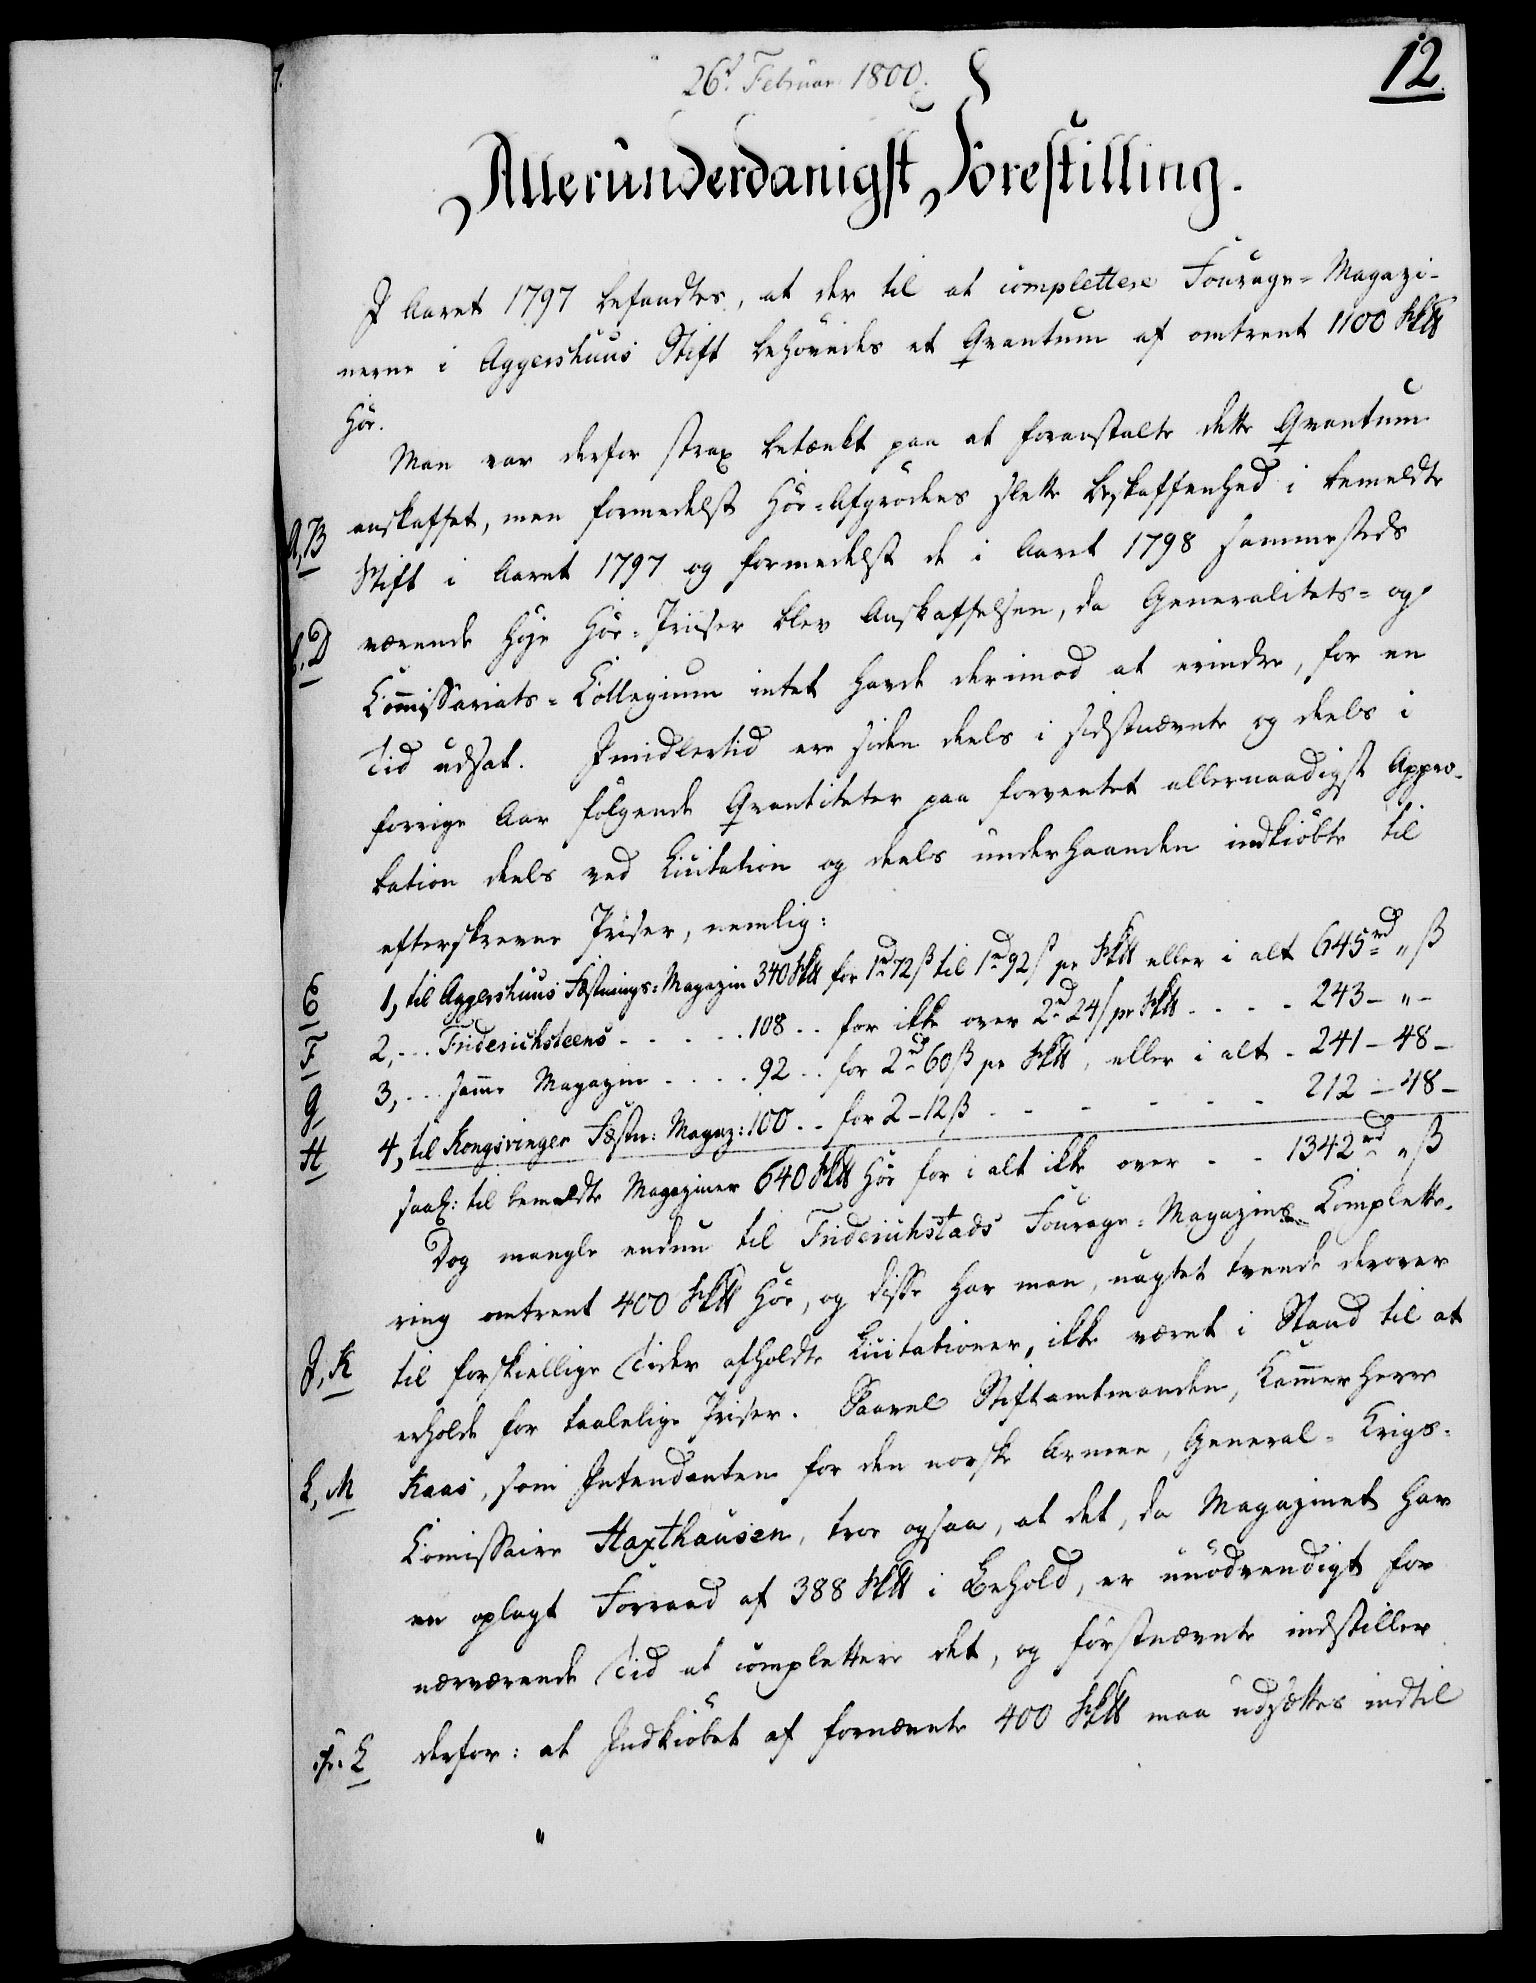 12.
26d Februar 1800.
Allerunderdanigst Forestilling.
I Aaret 1797 befandtes, at der til at complettere Fourage-Magazi-
nerne i Aggershuus Stift behövedes et Qvantum af omtrent 1100 Sk℔
Höe.
Man var derfor strax betænkt paa at foranstalte dette Qvantum
A, B anskaffet, men formedelst Höe-Afgrödens slette Beskaffenhed i bemeldte
Stift i Aaret 1797 og formedelst de i Aaret 1798 sammesteds
C, D værende höje Höe-Priiser blev Anskaffelsen, da Generalitets- og
Commissariats-Collegium intet havde derimod at erindre, for en
Tid udsat. Imidlertid ere siden deels i sidstnævnte og deels i
forrige Aar fölgende Qvantiteter paa forventet allernaadigst Appro-
bation deels ved Licitation og deels underhaanden indkiöbte til
efterskrevne Priser, nemlig:
E 1, til Aggershuus Fæstnings-Magazin 340 Sk℔ for 1rd 72 ß til 1rd 92 ß pr Sk℔ eller i alt 645rd „ ß
F 2, - - - Friderichsteens - - - - - 108 - - for ikke over 2rd 24 ß pr Sk℔ - - - - 243 - „ -
G, 3, - - - samme Magazin - - - - 92 - - for 2rd 60 ß pr Sk℔, eller i alt - 241 - 48 -
H 4, til Kongsvinger Fæstn: Magaz: 100 - - for 2 - 12 ß - - - - - - - 212 - 48 -
saa: til bemeldte Magaziner 640 Sk℔ Höe for i alt ikke over - - 1342rd „ ß
Dog mangle endnu til Friderichstads Fourage-Magazins Complette-
ring omtrent 400 Sk℔ Höe, og disse har man, uagtet tvende derover
I, K til forskiellige Tider afholdte Licitationer, ikke været i Stand til at
erholde for taalelige Priser. Saavel Stiftamtmanden, Kammerherre
L, M Kaas, som Intendanten for den norske Armee, General-Krigs-
Commissaire Haxthausen, troe ogsaa, at det, da Magazinet har
en oplagt Forraad af 388 Sk℔ i Behold, er unödvendigt for
nærværende Tid at complettere det, og förstnævnte indstiller
L derfor: at Indkiöbet af fornævnte 400 Sk℔ maa udsættes indtil